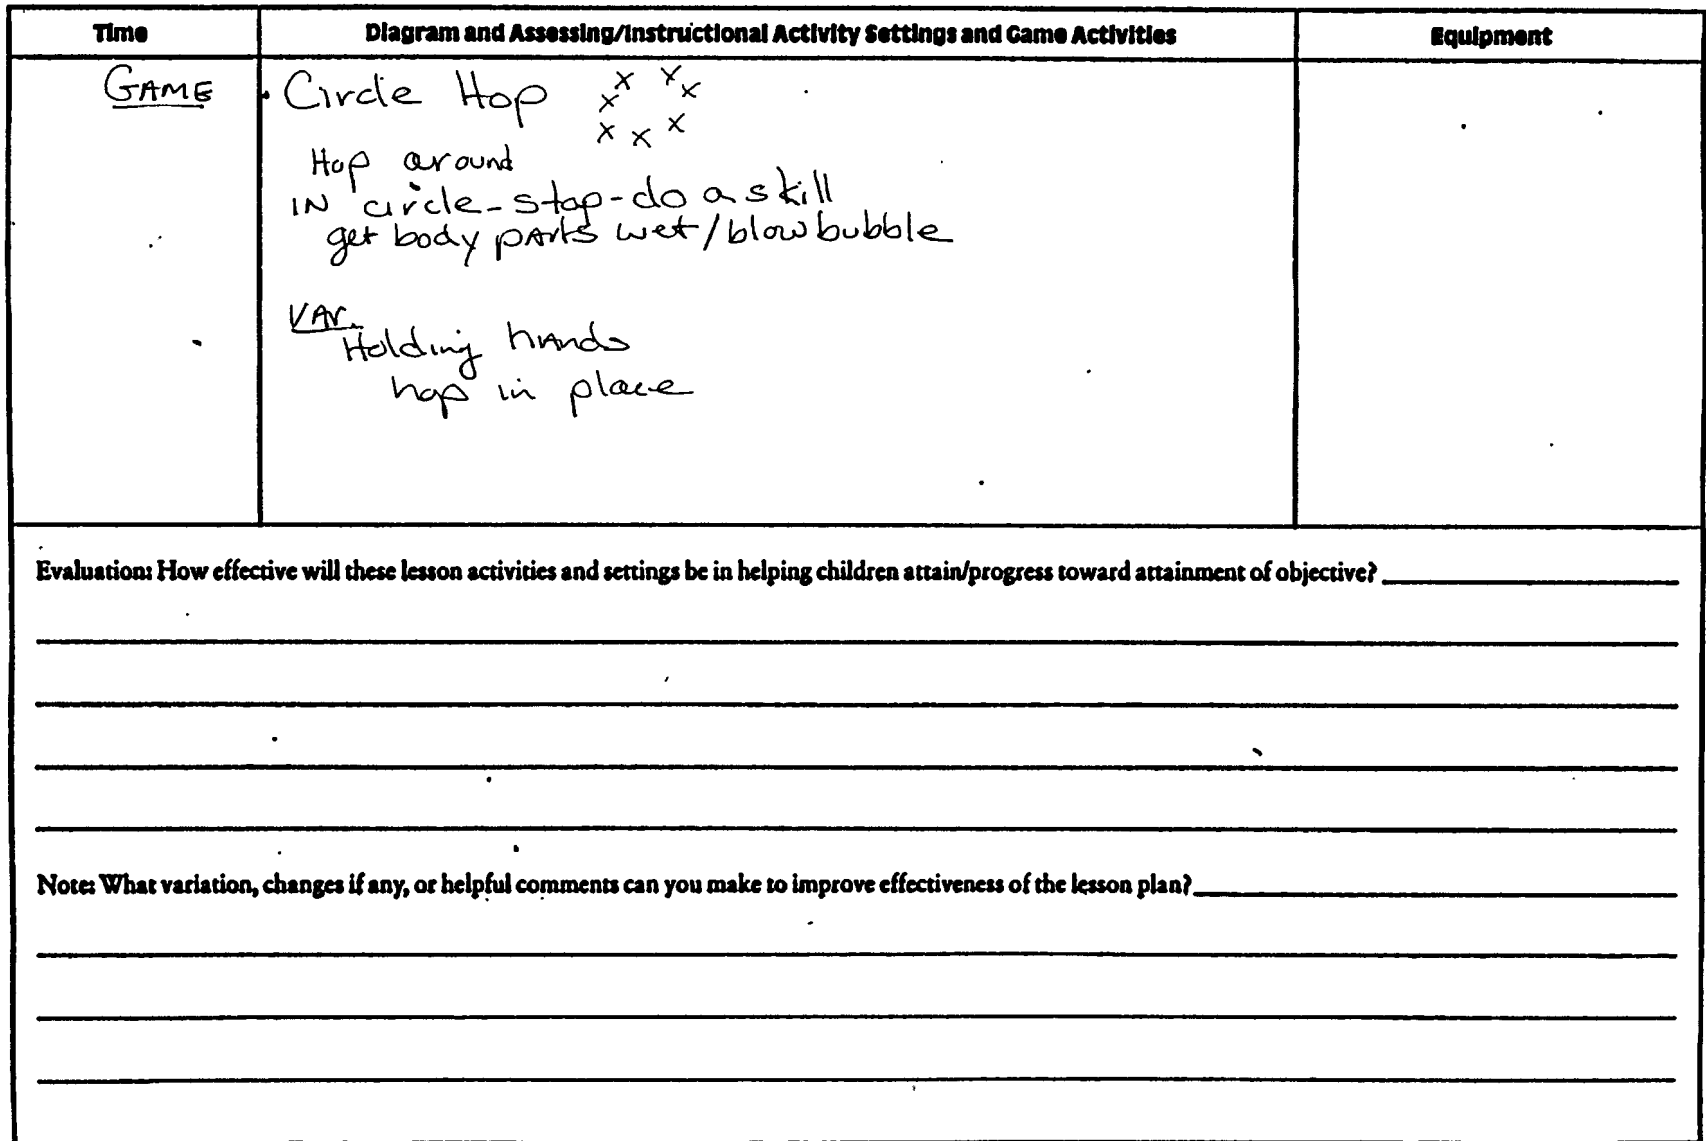 Time Diagram and Assessing/Instructional Activity Settings and Game Activities Equipment
GAME . Circle Hop x x x x x x x
Hop around
IN circle - stop - do a skill
get body parts wet / blow bubble
VAr.
Holding hands
hop in place
Evaluation: How effective will these lesson activities and settings be in helping children attain/progress toward attainment of objective?
Note: What variation, changes if any, or helpful comments can you make to improve effectiveness of the lesson plan?